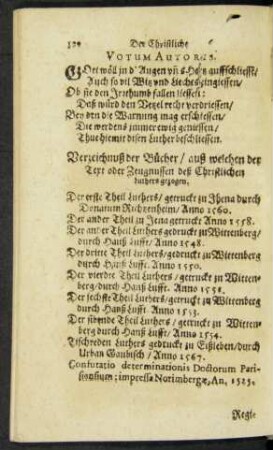 Der Christliche
VOTUM AUTORIS.
GOtt wöll in d' Augen vñ s Hertz auffschliesst,
Auch so vil Witz und Liechts eingiessen/
Ob sie den Irrthumb fallen liessen:
Daß würd den Vexel recht verdriessen/
Bey den die Warnung mag erschiessen/
Die werdens immer ewig geniessen/
Thue hiemit disen Luther beschliessen.
Verzeichnuß der Bücher/ auß welchen der
Text oder Zeugnussen deß Christlichen
Luthers gezogen.
Der erste Theil Luthers/ getruckt zu Jhena durch
Donatum Richtzenheim/ Anno 1560.
Der ander Theil zu Jena getruckt Anno 1558.
Der ander Theil Luthers gedruckt zu Wittenberg/
durch Hanß Lufft/ Anno 1548.
Der dritte Theil Luthers/ gedruckt zu Wittenberg
durch Hanß Lufft. Anno 1550.
Der vierdte Theil Luthers/ getruckt zu Witten-
berg/ durch Hanß Lufft. Anno 1551.
Der sechste Theil Luthers/ getruckt zu Wittenberg
durch Hanß Lufft Anno 1553.
Der sibende Theil Luthers/ getruckt zu Witten-
berg durch Hanß Lufft/ Anno 1554.
Tischreden Luthers gedruckt zu Eißleben/ durch
Urban Gaubisch/ Anno 1567.
Confutatio determinationis Doctorum Pari-
siensium; impressa Norimbergæ, An, 1525.
Regi-